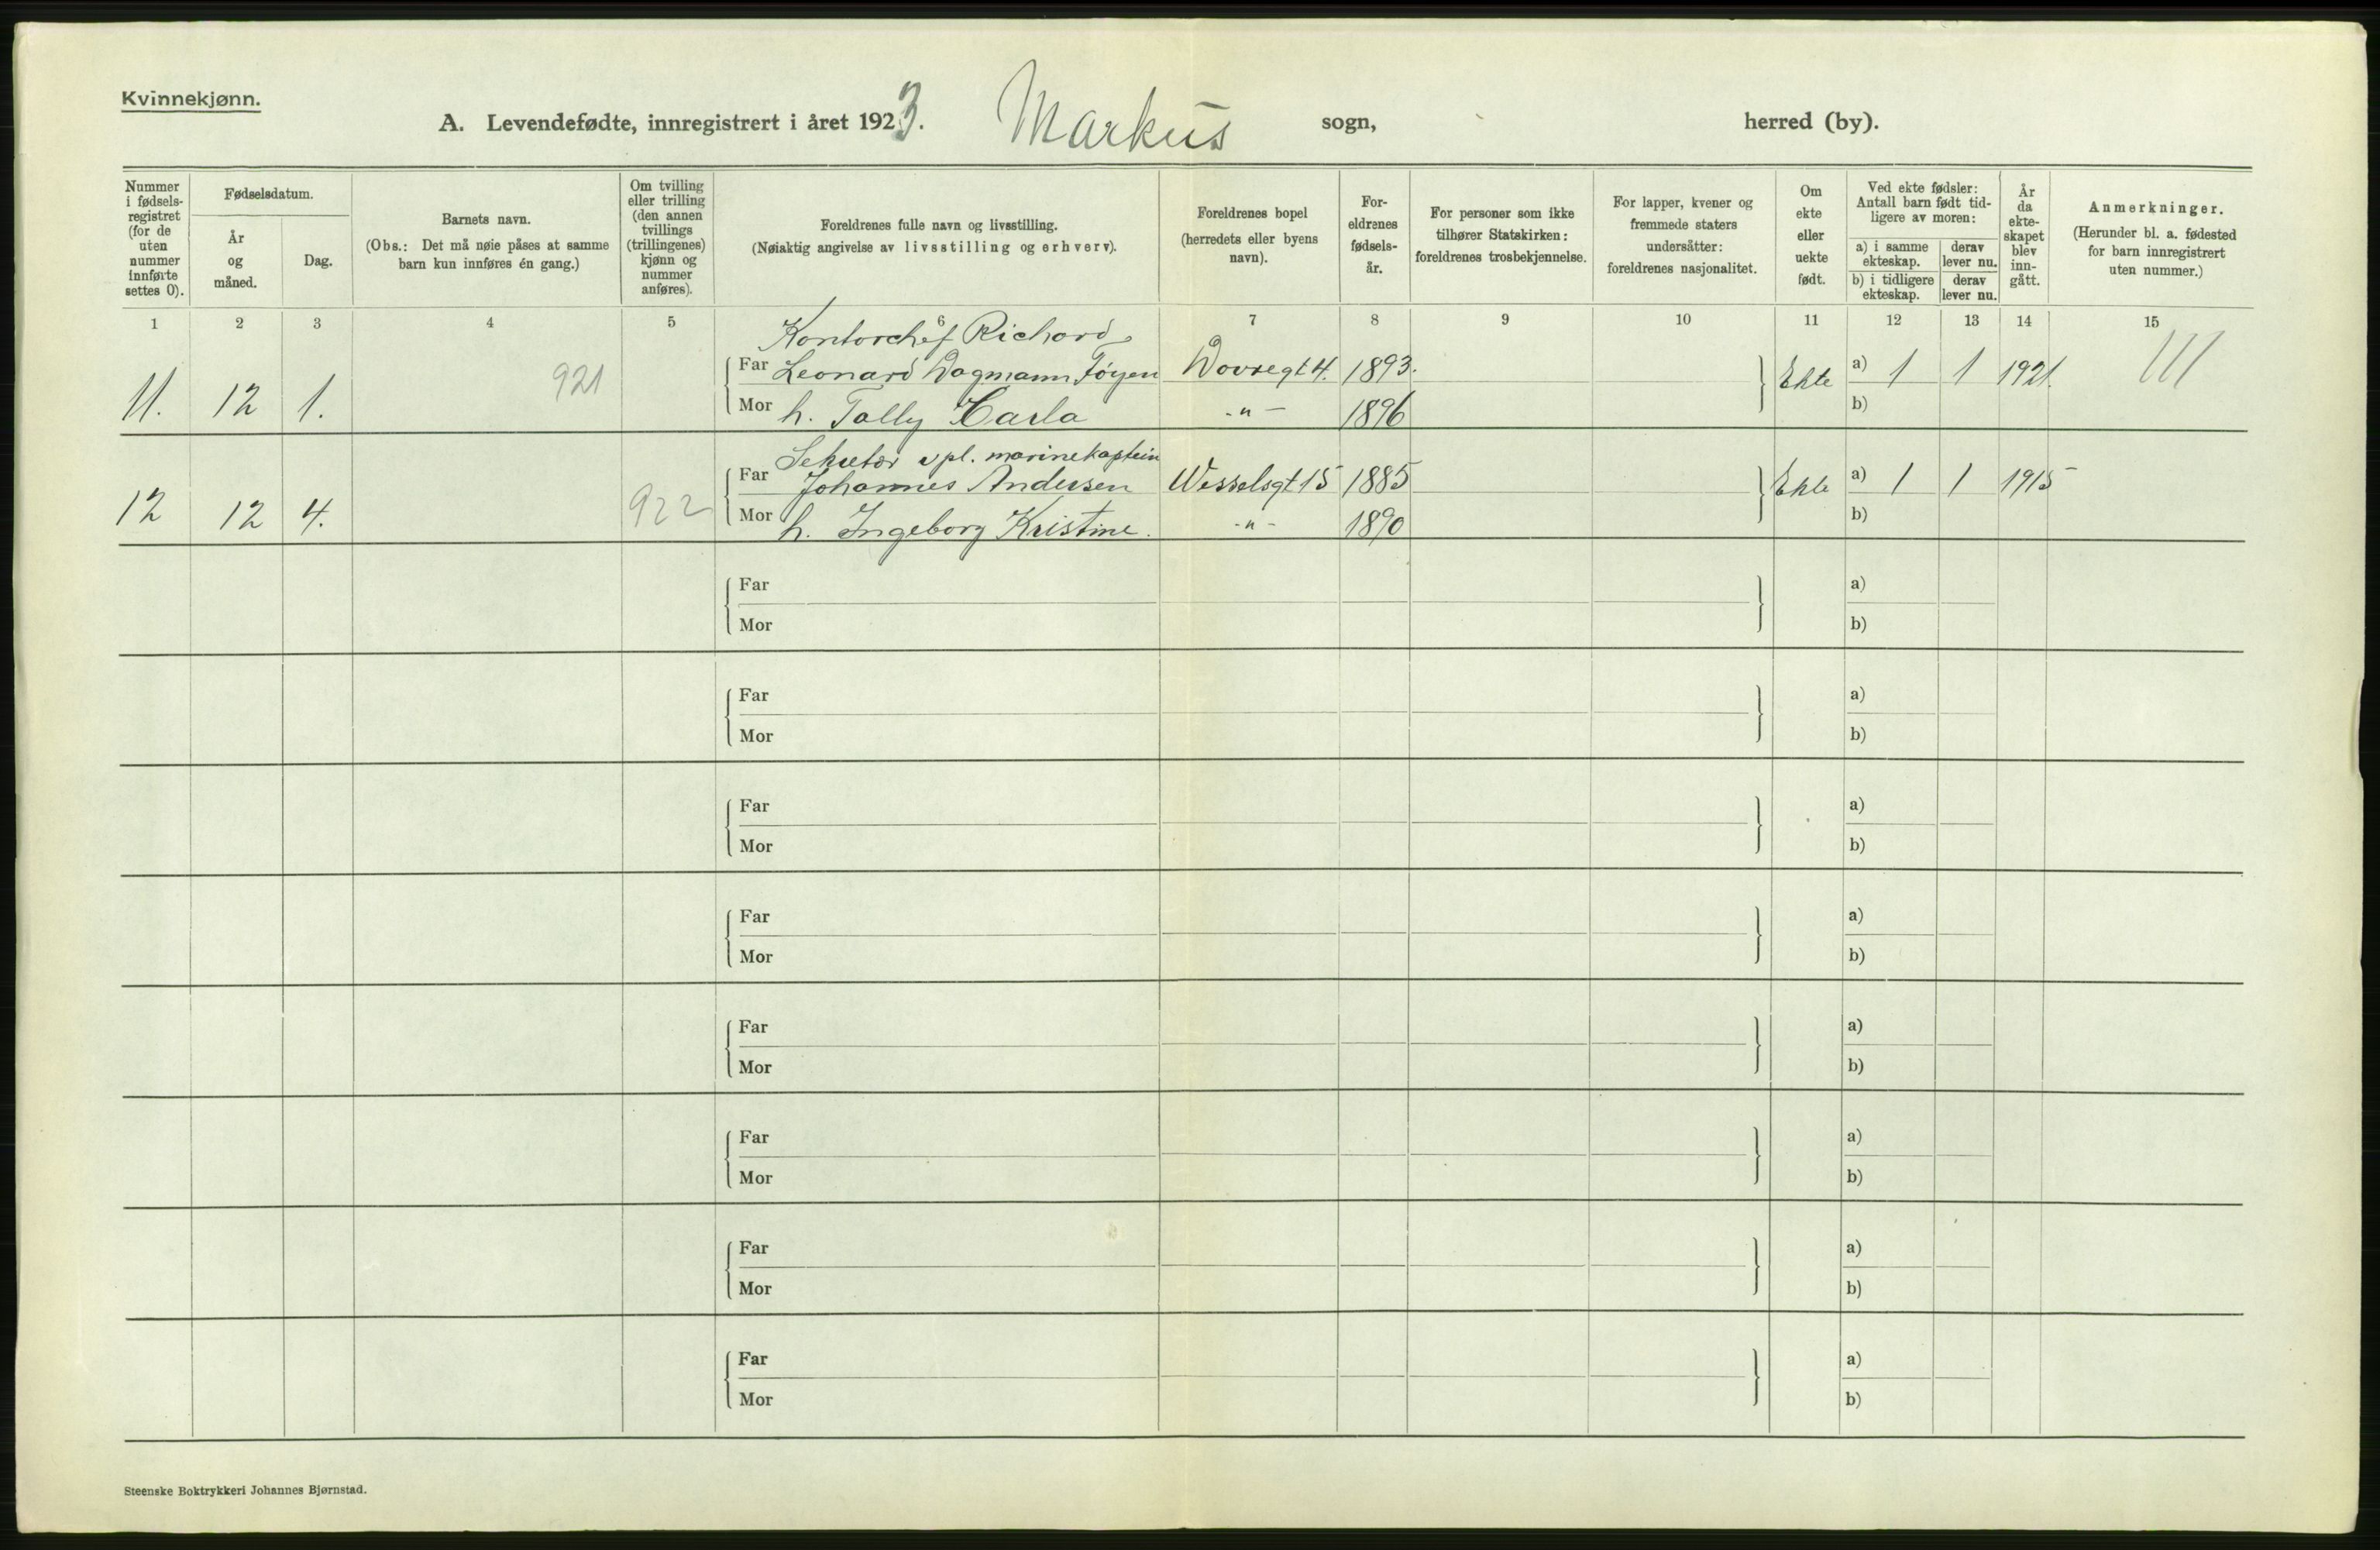 Kvinnekjønn.
A. Levendefødte, innregistrert i året 1923. Markus sogn, herred (by).
Nummer i fødsels-registret (for de uten nummer innførte settes 0).
Fødselsdatum.
År og måned.
Dag.
Barnets navn.
(Obs.: Det må nøie påses at samme barn kun innføres én gang.)
Om tvilling eller trilling (den annen tvillings (trillingenes) kjønn og nummer anføres).
Foreldrenes fulle navn og livsstilling.
(Nøiaktig angivelse av livsstilling og erhverv).
Foreldrenes bopel (herredets eller byens navn).
For-eldrenes fødsels-år.
For personer som ikke tilhører Statskirken: foreldrenes trosbekjennelse.
For lapper, kvener og fremmede staters undersåtter: foreldrenes nasjonalitet.
Om ekte eller uekte født.
Ved ekte fødsler: Antall barn født tid-ligere av moren:
a) i samme ekteskap. derav lever nu.
b) i tidligere ekteskap. derav lever nu.
År da ekte-skapet blev inn-gått.
Anmerkninger.
(Herunder bl. a. fødested for barn innregistrert uten nummer.)
1 2 3 4 5 6 7 8 9 10 11 12 13 14 15
Kontorchef Richard
11. 12 1. 921 Far Leonard Dagmann Føyen Dovregt 4. 1893. Ekte a) 1 1 1921. 111
Mor h. Tolly Carla -"- 1896 b)
Sekretær vpl. marinekaptein
12 12 4. 922 Far Johannes Andersen Wesselsgt 15 1885 Ekte a) 1 1 1915
Mor h. Ingeborg Kristine. -"- 1890 b)
Far a)
Mor b)
Far a)
Mor b)
Far a)
Mor b)
Far a)
Mor b)
Far a)
Mor b)
Far a)
Mor b)
Far a)
Mor b)
Far a)
Mor b)
Steenske Boktrykkeri Johannes Bjørnstad.